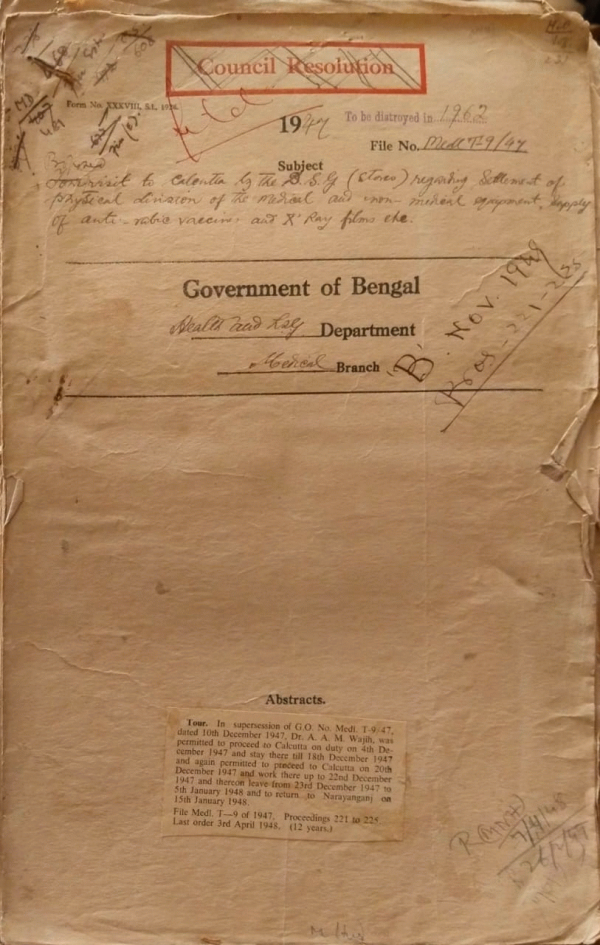 Council Resolution
Form No. XXXVIII, S.I. 1926.
1947
To be distroyed in 1962
File No. Medl T-9/47
Subject
visit to Calcutta by the D.S.G (Stores) regarding Settlement of
physical division of the medical and non-medical equipment, supply
of anti-rabic vaccine and X'Ray films etc.
Government of Bengal
Health and LSG Department
Medical Branch
'B'. Nov. 1949
Progs-221-225
Abstracts.
Tour. In supersession of G.O. No. Medl. T-9/47,
dated 10th December 1947, Dr. A. A. M. Wajih, was
permitted to proceed to Calcutta on duty on 4th De-
cember 1947 and stay there till 18th December 1947
and again permitted to proceed to Calcutta on 20th
December 1947 and work there up to 22nd December
1947 and thereon leave from 23rd December 1947 to
5th January 1948 and to return to Narayanganj on
15th January 1948.
File Medl. T—9 of 1947. Proceedings 221 to 225
Last order 3rd April 1948. (12 years.)